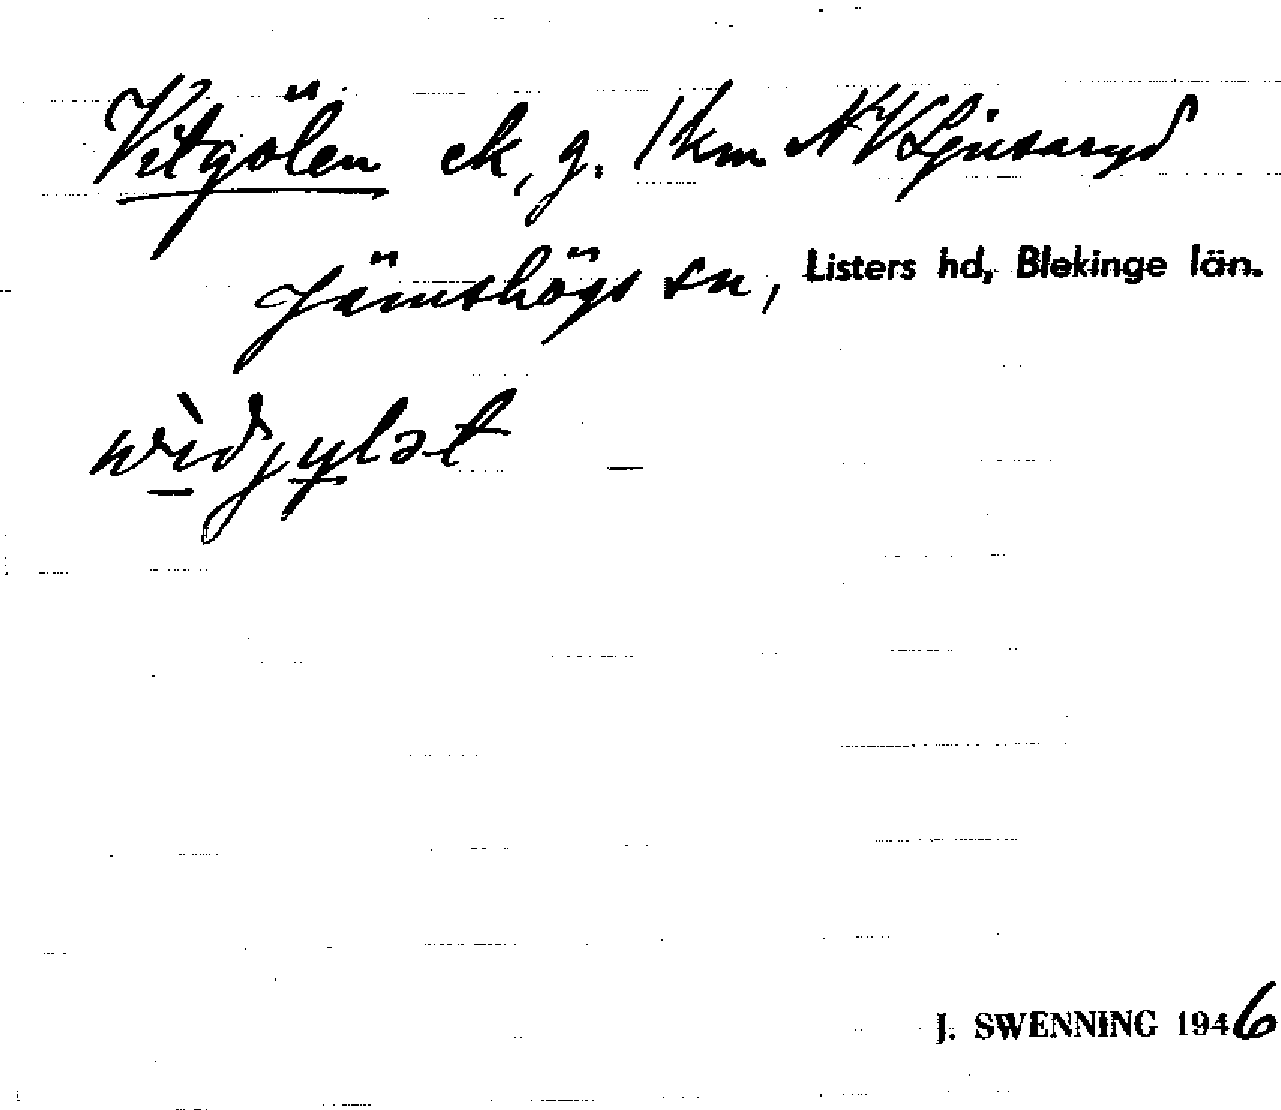 Vitgölen ek, g. 1 km NV Ljusaryd
Jämshögs sn, Listers hd, Blekinge län.
wìdjylət
J. SWENNING 1946